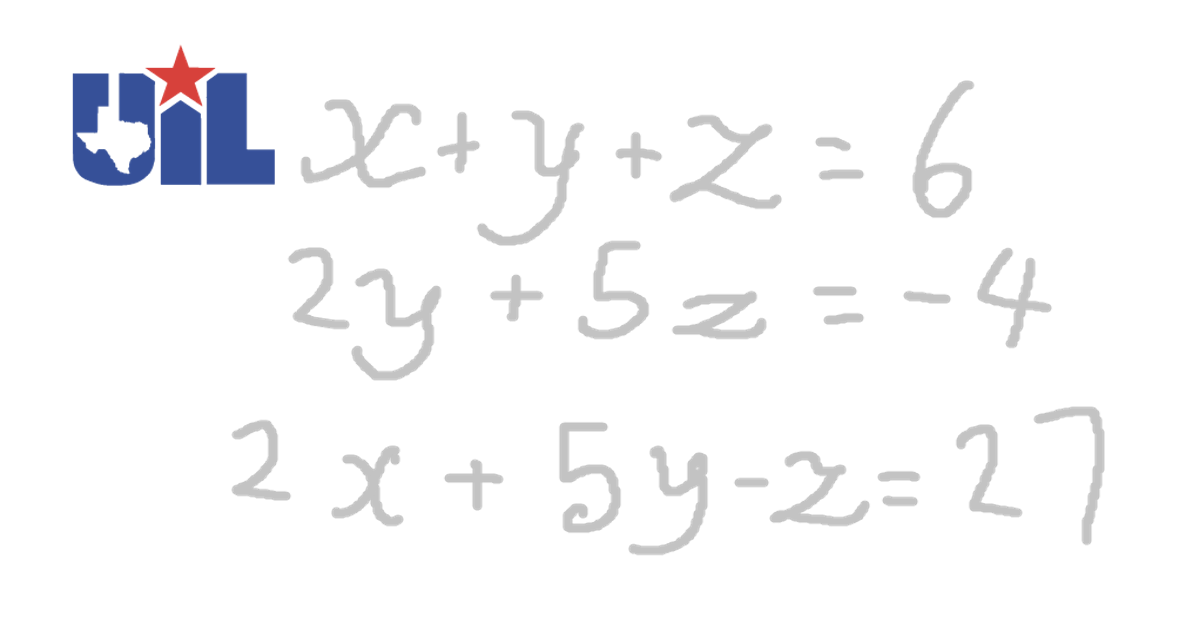 UIL
x+y+z=6
2y+5z=-4
2x+5y-z=27